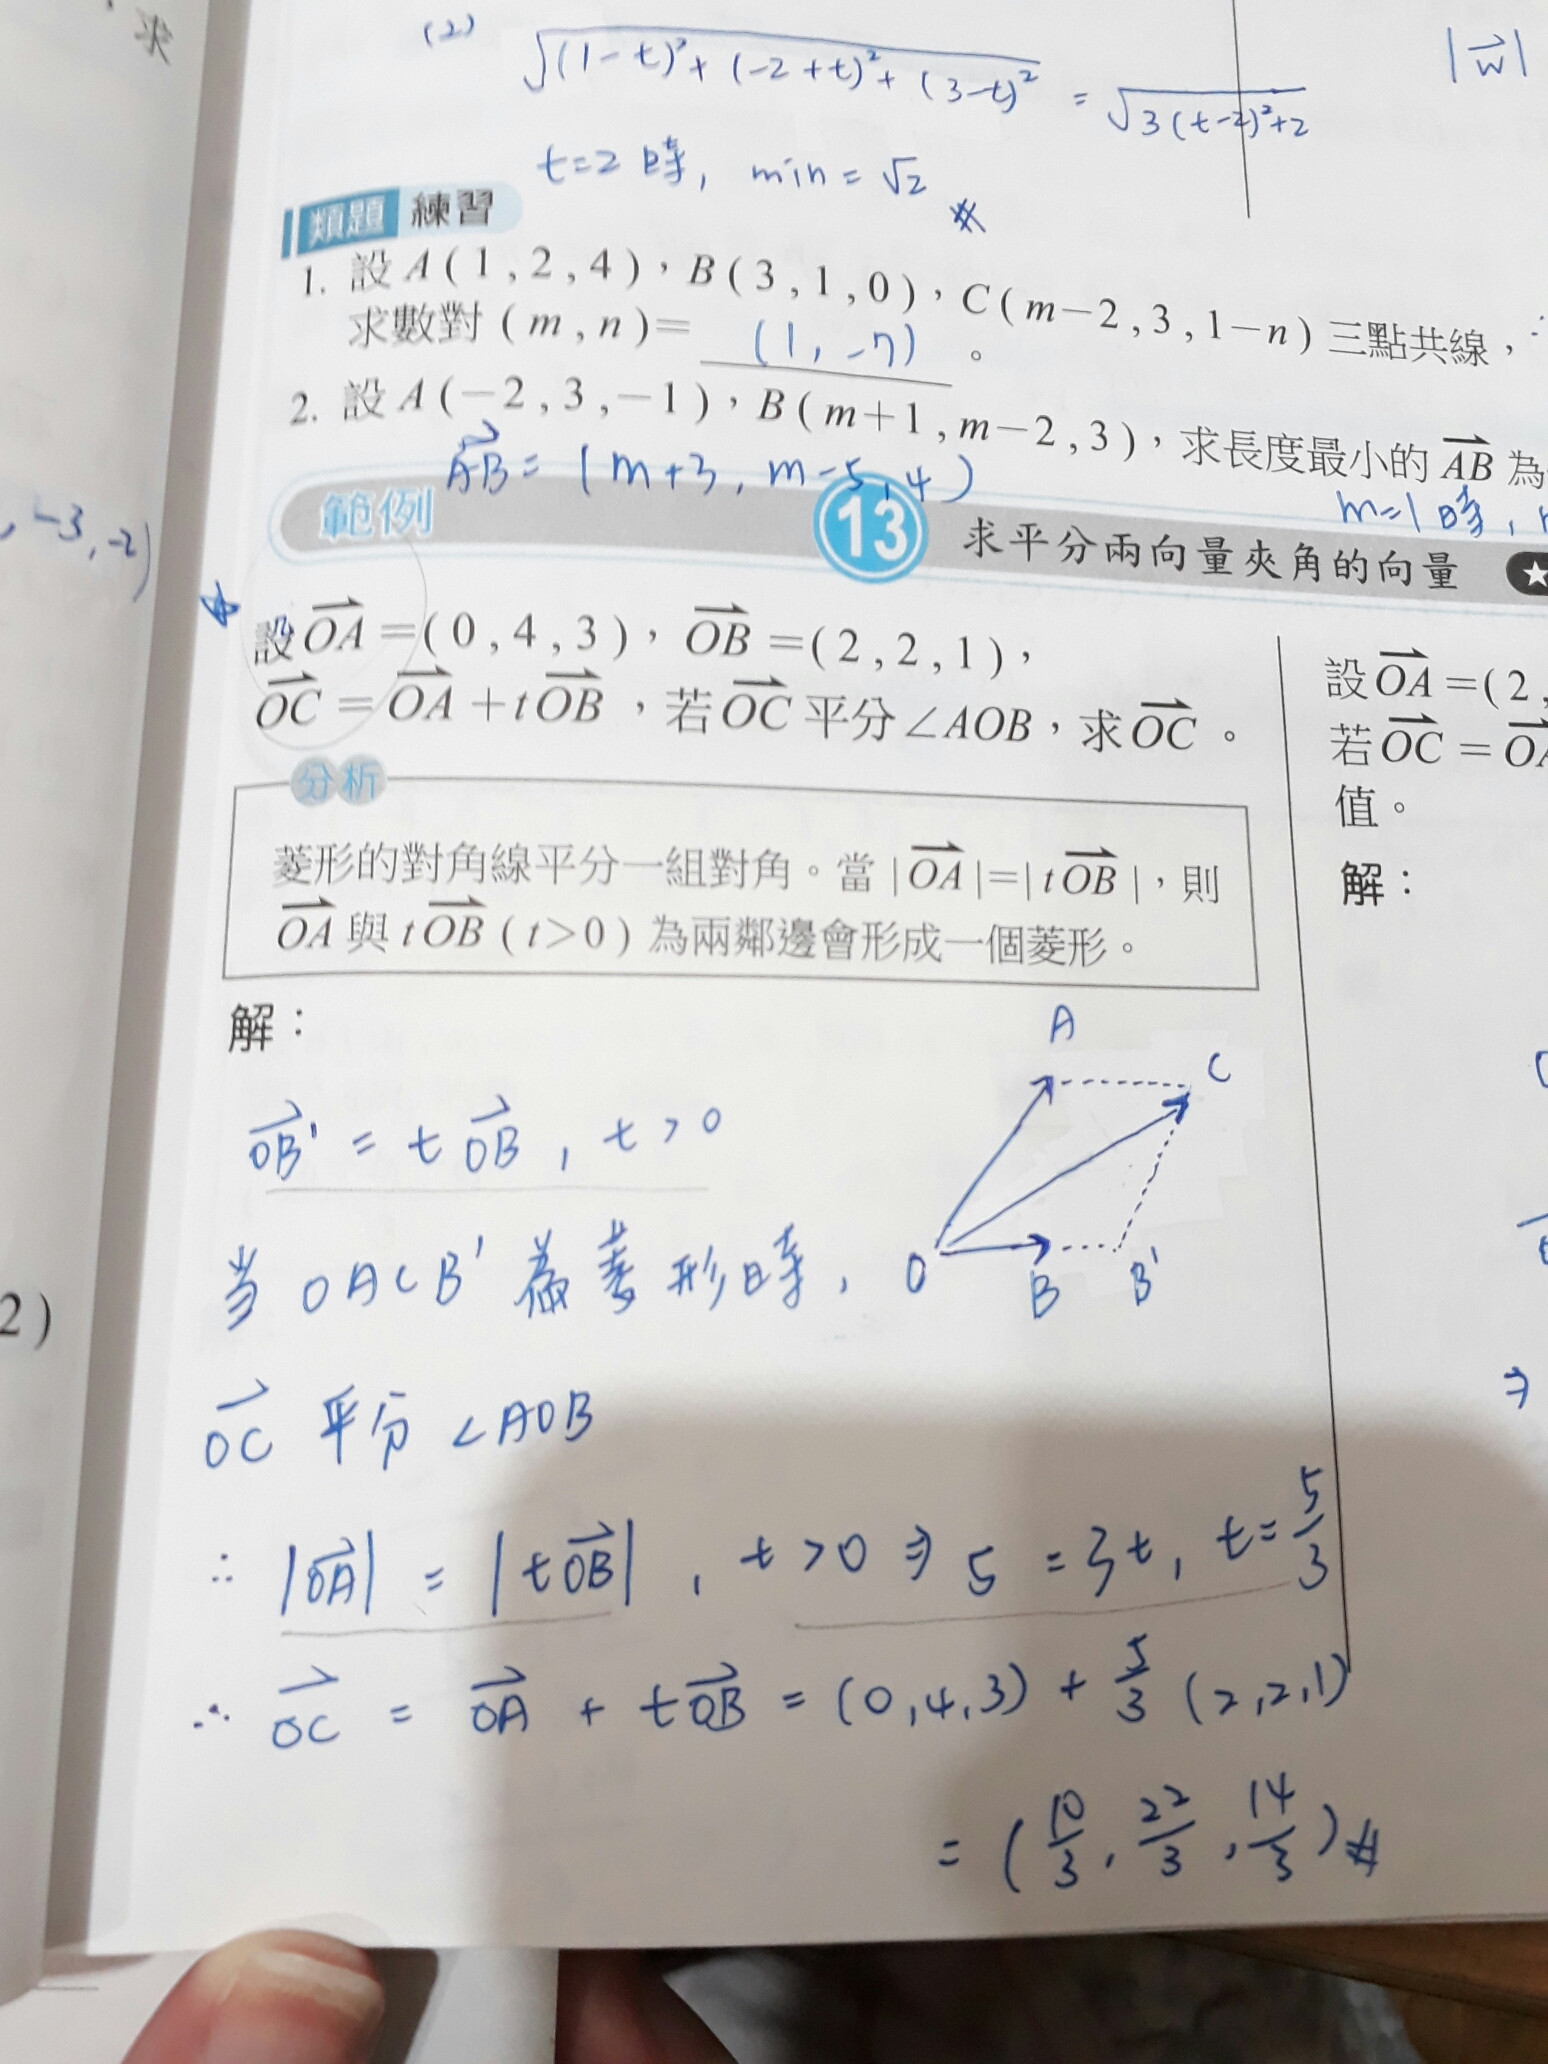 求
(2) √((1-t)²+(-2+t)²+(3-t)²) = √(3(t-2)²+2)
|w⃗|
t=2時, min=√2 #
類題 練習
1. 設A(1,2,4),B(3,1,0),C(m-2,3,1-n)三點共線,
求數對(m,n)= (1,-7) 。
2. 設A(-2,3,-1),B(m+1,m-2,3),求長度最小的 AB⃗ 為
AB⃗ = (m+3, m-5, 4)
m=1時,
, -3, -2)
範例 13 求平分兩向量夾角的向量 ★
設OA⃗=(0,4,3),OB⃗=(2,2,1),
OC⃗=OA⃗+tOB⃗,若OC⃗平分∠AOB,求OC⃗。
分析
菱形的對角線平分一組對角。當|OA⃗|=|tOB⃗|,則
OA⃗與tOB⃗(t>0)為兩鄰邊會形成一個菱形。
解:
A
C
O
B
B'
OB'⃗ = tOB⃗, t>0
当OACB'為菱形時,
OC⃗ 平分∠AOB
∴ |OA⃗| = |tOB⃗|, t>0 ⇒ 5=3t, t=5/3
∴ OC⃗ = OA⃗ + tOB⃗ = (0,4,3) + 5/3 (2,2,1)
= (10/3, 22/3, 14/3) #
設OA⃗=(2,
若OC⃗=OA
值。
解:
⇒
2)